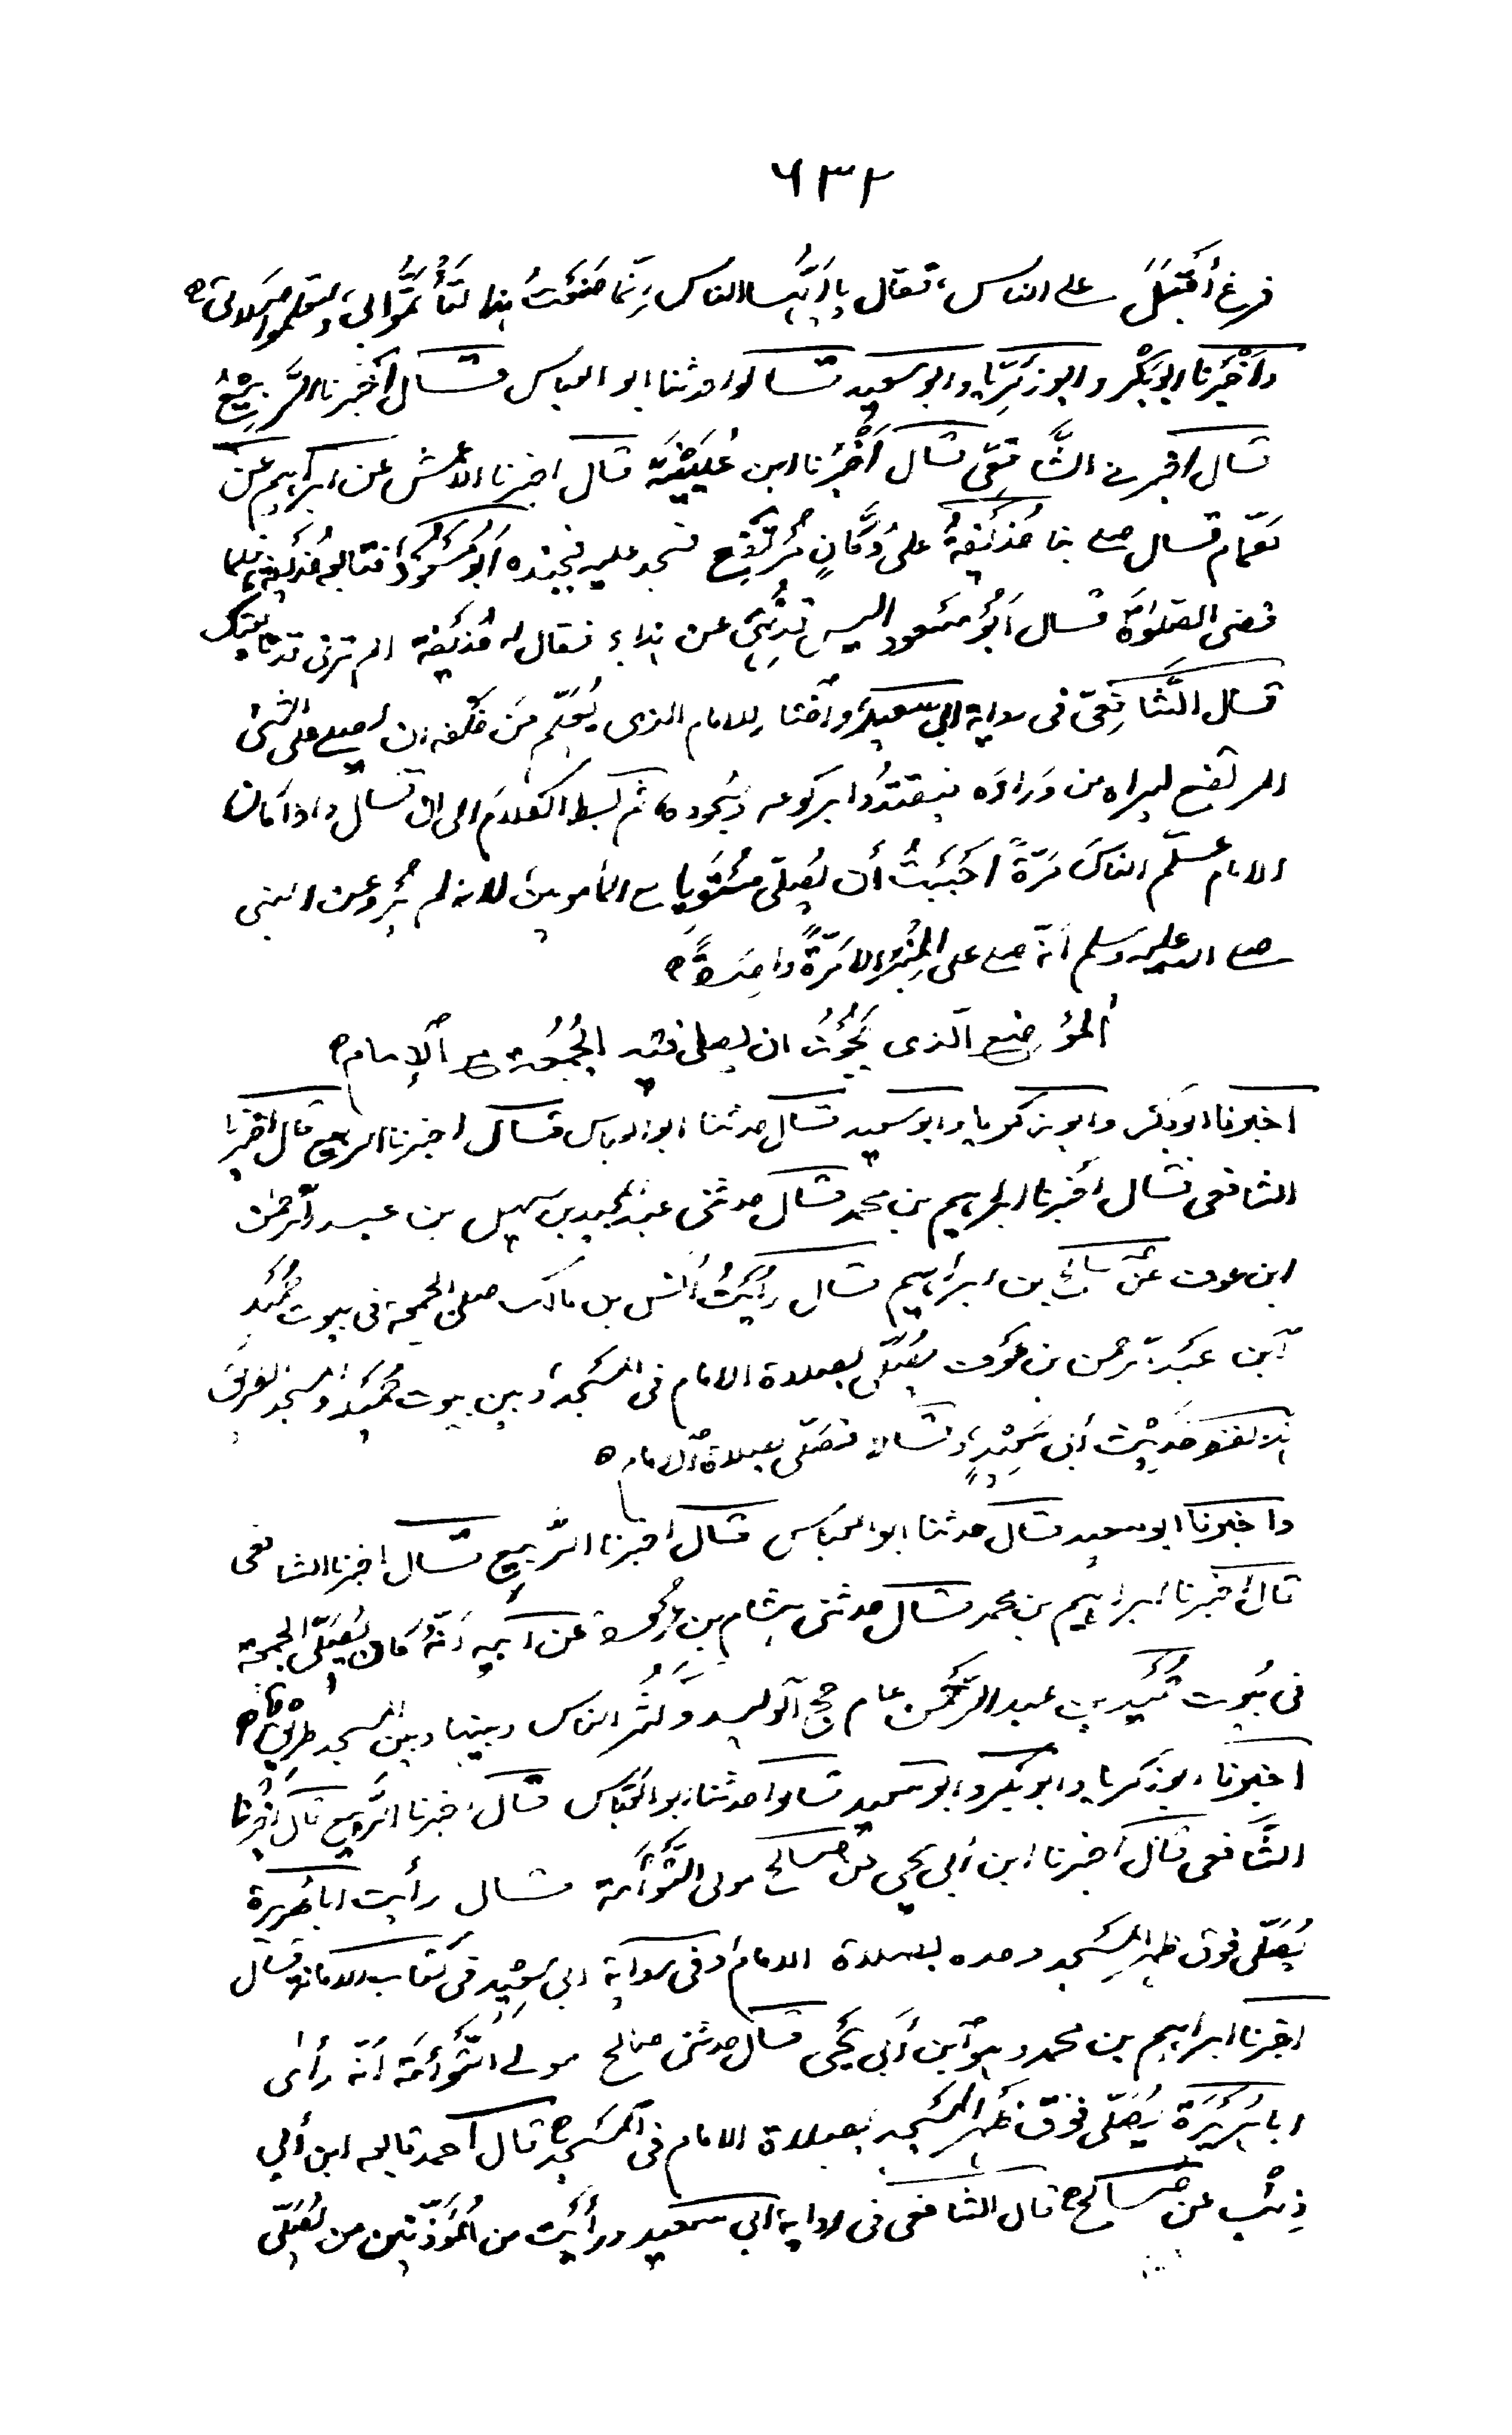 ٦٣٢
فرغ أقبل على الناس، فقال يا أيها الناس إنما صنعت هذا لتأتموا بي، ولتعلموا صلاتي ٥
وأخبرنا ابو بكر وابو زكريا وابو سعيد قالوا حدثنا ابو العباس قال أخبرنا الربيع
قال اخبرنا الشافعي قال أخبرنا ابن عيينة قال اخبرنا الأعمش عن ابراهيم عن
همّام قال صلى بنا حذيفة على دكان مرتفع فسجد عليه فجبذه أبو مسعود فتابعه حذيفة فلما
قضى الصلوة قال أبو مسعود اليس قد نهي عن هذا، فقال له حذيفة الم ترني قد تابعتك
قال الشافعي في رواية ابي سعيد وأختار للامام الذي يعلّم من خلفه ان يصلي على الشئ
المرتفع ليراه من وراءه فيقتدوا بركوعه وسجوده، ثم بسط الكلام الى ان قال واذا كان
الامام علّم الناس مرّةً أحببت أن يصلّي مستويا مع المأمومين لانه لم يرو عن النبي
صلى الله عليه وسلم أنه صلى على المنبر الا مرّةً واحدةً ٥
الموضع الذي يجوز ان يصلى فيه الجمعة مع الإمام ٥
اخبرنا ابو بكر وابو زكريا وابو سعيد قال حدثنا ابو العباس قال اخبرنا الربيع قال اخبرنا
الشافعي قال أخبرنا ابراهيم بن محمد قال حدثني عبد المجيد بن سهيل بن عبد الرحمن
ابن عوف عن صالح بن ابراهيم قال رأيت أنس بن مالك صلى الجمعة في بيوت حميد
ابن عبد الرحمن بن عوف فصلّى بصلاة الامام في المسجد وبين بيوت حميد والمسجد الطريق
هذا لفظ حديث أبي سعيد، وقالا فصلّى بصلاة الامام ٥
واخبرنا ابو سعيد قال حدثنا ابو العباس قال اخبرنا الربيع قال اخبرنا الشافعي
قال أخبرنا ابراهيم بن محمد قال حدثني هشام بن عروة عن أبيه أنّه كان يصلّي الجمعة
في بيوت حميد بن عبد الرحمن عام حج الوليد وكثر الناس وبينها وبين المسجد طريق ٥
اخبرنا ابو زكريا وابو بكر وابو سعيد قالوا حدثنا ابو العباس قال اخبرنا الربيع قال أخبرنا
الشافعي قال أخبرنا ابن أبي يحيى عن صالح مولى التوأمة قال رأيت ابا هريرة
يصلّي فوق ظهر المسجد وحده بصلاة الامام وفي رواية ابي سعيد في كتاب الامامة قال
اخبرنا ابراهيم بن محمد وهو ابن أبي يحيى قال حدثني صالح مولى التوأمة أنّه رأى
ابا هريرة يصلّي فوق ظهر المسجد بصلاة الامام في المسجد ٥ قال أحمد تابعه ابن أبي
ذئب عن صالح ٥ قال الشافعي في رواية ابي سعيد ورأيت من المؤذّنين من يصلّي